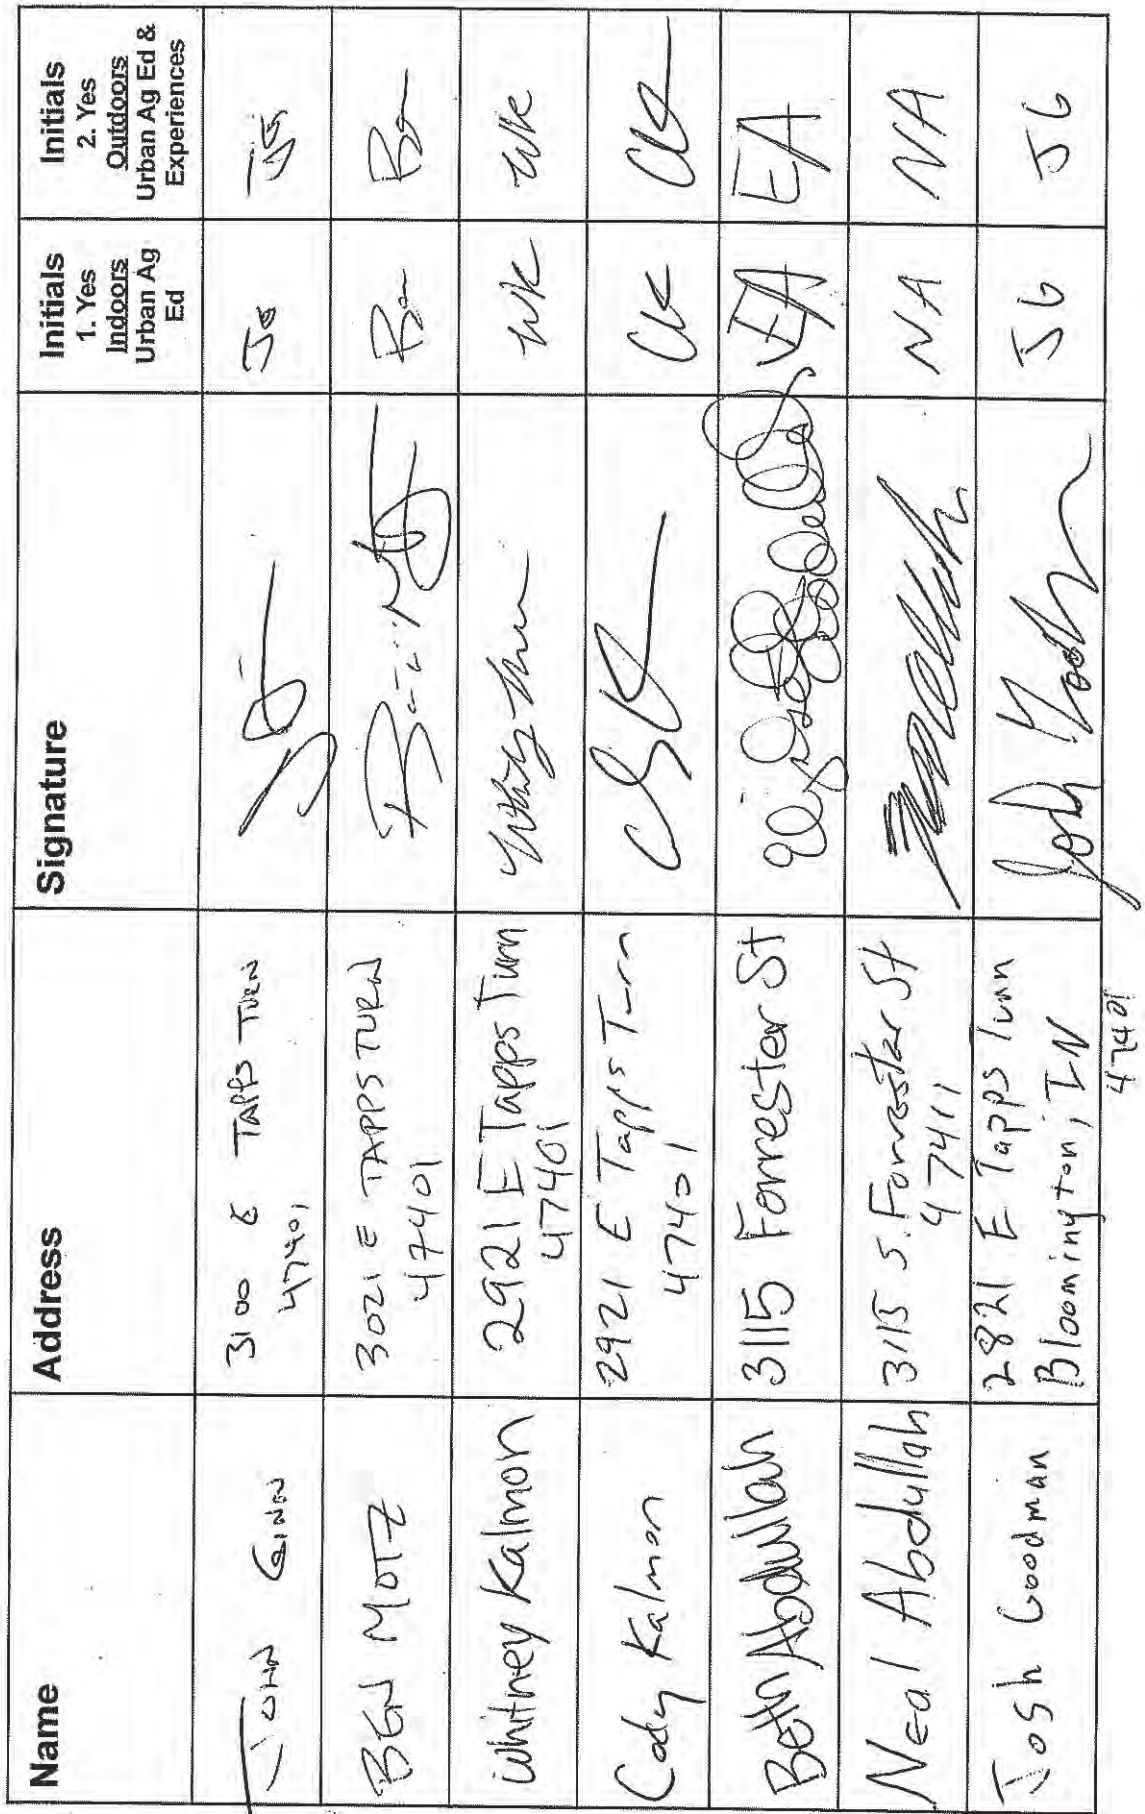 Name
Address
Signature
Initials
1. Yes
Indoors
Urban Ag
Ed
Initials
2. Yes
Outdoors
Urban Ag Ed &
Experiences
JOHN GINN
3100 E TAPPS TURN
47401
JG
JG
BEN MOTZ
3021 E TAPPS TURN
47401
Whitney Kalmon
2921 E Tapps Turn
47401
WK
WK
Cody Kalmon
2921 E Tapps Turn
47401
CK
CK
Beth Abdullah
3115 Forrester St
EA
EA
Neal Abdullah
3115 S. Forrester St
47411
NA
NA
Josh Goodman
2821 E Tapps Turn
Bloomington, IN
47401
JG
JG